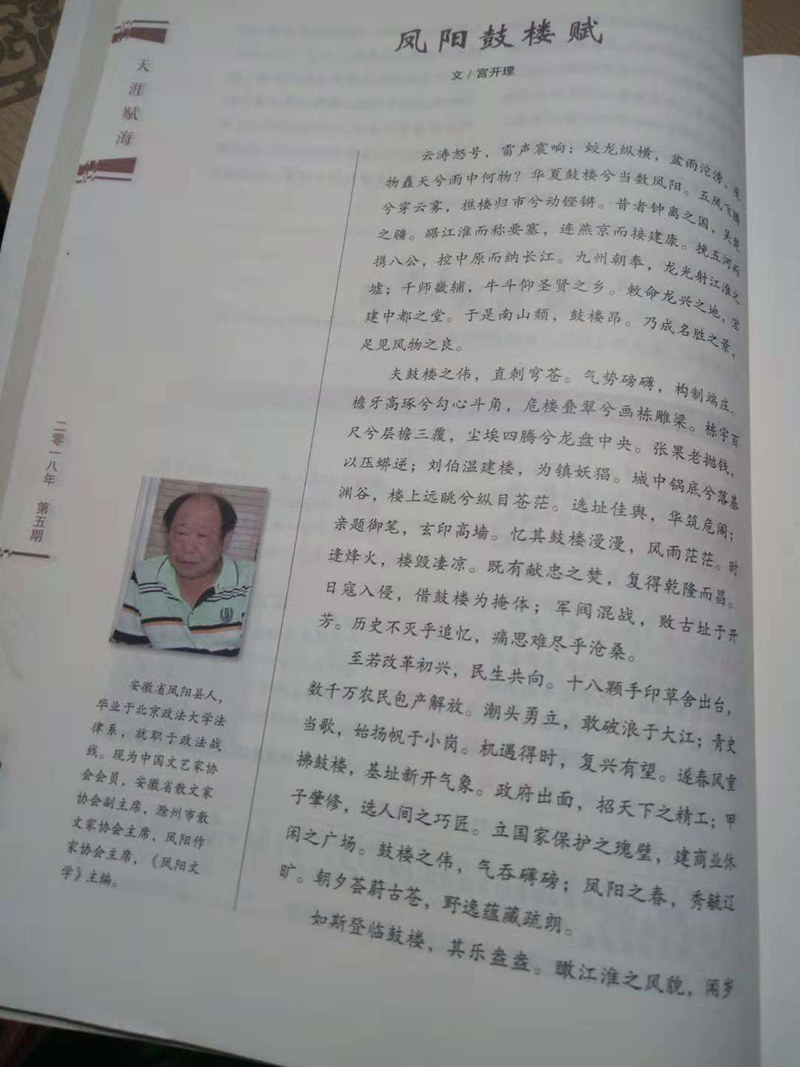 凤阳鼓楼赋
文/宫开理
天涯赋海
二零一八年 第五期
云涛怒号，雷声震响；蛟龙纵横，盆雨沱滂。
物矗天兮雨中何物？华夏鼓楼兮当数凤阳。五凤飞腾
兮穿云雾，樵楼归市兮动铿锵。昔者钟离之国，吴楚
之疆。踞江淮而称要塞，连燕京而接建康。挽五河而
携八公，控中原而纳长江。九州朝奉，龙光射江淮之
墟；千师徽辅，牛斗仰圣贤之乡。敕命龙兴之地，宏
建中都之堂。于是南山颓，鼓楼昂。乃成名胜之景，
足见风物之良。
夫鼓楼之伟，直刺穹苍。气势磅礴，构制端庄。
檐牙高琢兮勾心斗角，危楼叠翠兮画栋雕梁。栋宇百
尺兮层檐三覆，尘埃四腾兮龙盘中央。张果老抛钱，
以压蟒逆；刘伯温建楼，为镇妖猖。城中锅底兮落基
渊谷，楼上远眺兮纵目苍茫。选址佳舆，华筑危阁；
亲题御笔，玄印高墙。忆其鼓楼漫漫，风雨茫茫。时
逢烽火，楼毁凄凉。既有献忠之焚，复得乾隆而昌。
日寇入侵，借鼓楼为掩体；军阀混战，败古址于开
芳。历史不灭乎追忆，痛思难尽乎沧桑。
至若改革初兴，民生共向。十八颗手印草舍出台，
数千万农民包产解放。潮头勇立，敢破浪于大江；青史
当歌，始扬帆于小岗。机遇得时，复兴有望。遂春风重
拂鼓楼，基址新开气象。政府出面，招天下之精工；甲
子肇修，选人间之巧匠。立国家保护之瑰璧，建商业休
闲之广场。鼓楼之伟，气吞礴磅；凤阳之春，秀毓辽
旷。朝夕荟蔚古苍，野逸蕴藏疏朗。
如斯登临鼓楼，其乐盎盎。瞰江淮之风貌，阅岁
安徽省凤阳县人，
毕业于北京政法大学法
律系，就职于政法战
线。现为中国文艺家协
会会员，安徽省散文家
协会副主席，滁州市散
文家协会主席，凤阳作
家协会主席，《凤阳文
学》主编。